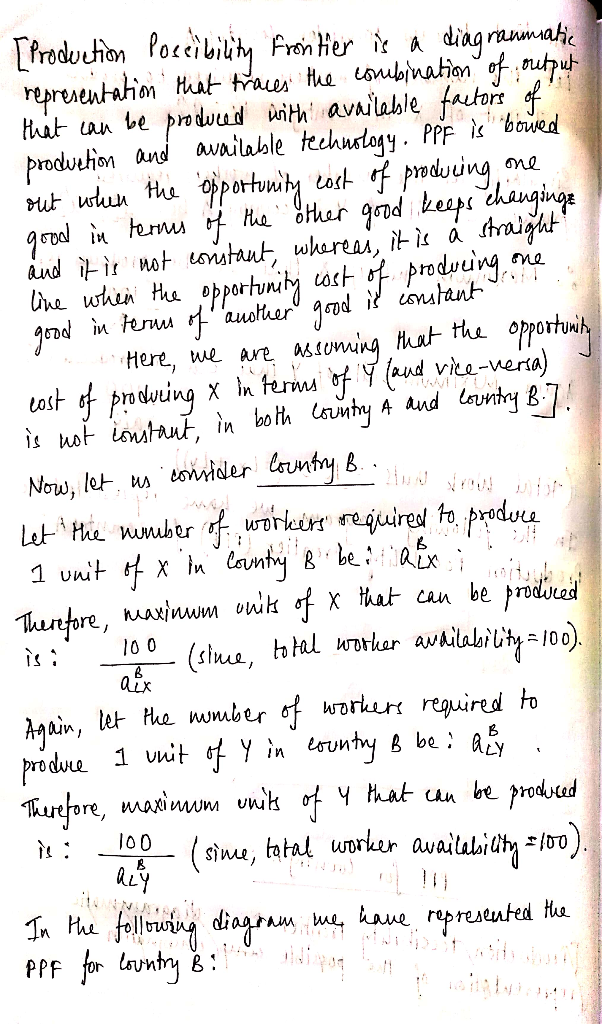 [Production Possibility Frontier is a diagrammatic
representation that traces the combination of output
that can be produced with available factors of
production and available technology. PPF is bowed
out when the opportunity cost of producing one
good in terms of the other good keeps changing
and it is not constant, whereas, it is a straight
line when the opportunity cost of producing one
good in terms of another good is constant
Here, we are assuming that the opportunity
cost of producing X in terms of Y (and vice-versa)
is not constant, in both Country A and Country B.].
Now, let us consider Country B.
Let the number of workers required to produce
1 unit of X in Country B be: a^B_LX
Therefore, maximum units of X that can be produced
is: 100 / a^B_LX (since, total worker availability = 100).
Again, let the number of workers required to
produce 1 unit of Y in country B be: a^B_LY .
Therefore, maximum units of Y that can be produced
is: 100 / a^B_LY (since, total worker availability = 100).
In the following diagram, we have represented the
PPF for Country B: